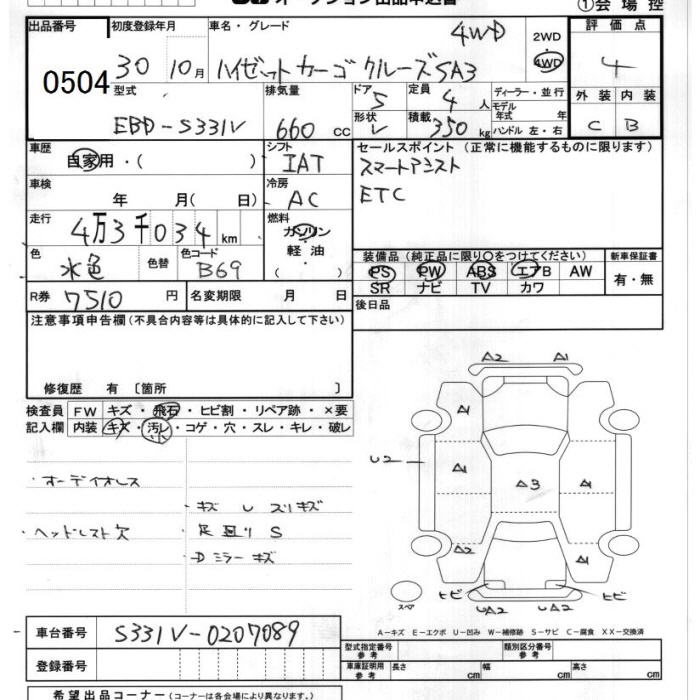 オークション出品申込書 ①会場控
出品番号 初度登録年月 車名・グレード 評価点
0504 30 10月 ハイゼットカーゴ クルーズSA3 4WD 2WD 4WD 4
型式 排気量 ドア 5 定員 4人 ディーラー・並行 外装 内装
EBD-S331V 660 cc 形状 V 積載 350 kg モデル年式 年式 ハンドル 左・右 C B
車歴 自家用・( ) シフト IAT セールスポイント (正常に機能するものに限ります)
車検 年 月( 日) 冷房 AC スマートアシスト
走行 4万3千034km 燃料 ガソリン 軽油・( ) ETC
色 水色 色替 色コード B69 装備品 (純正品に限り○をつけてください) 新車保証書
PS PW ABS エアB AW 有・無
SR ナビ TV カワ
R券 7510 円 名変期限 月 日 後日品
注意事項申告欄 (不具合内容等は具体的に記入して下さい)
修復歴 有 〔箇所 〕
検査員 FW キズ・飛石・ヒビ割・リペア跡・×要
記入欄 内装 キズ・汚レ・コゲ・穴・スレ・キレ・破レ
・オーディオレス
・キズ U スリキズ
・ヘッドレスト欠 足廻り S
・Dミラーキズ
A2 A1
A1
U2 A1 A3 A1
A2 A1
ヒビ ヒビ
スペア UA2 UA2
A-キズ E-エクボ U-凹み W-補修跡 S-サビ C-腐食 XX-交換済
車台番号 S331V-0207089
登録番号
型式指定番号 参考 類別区分番号 参考
車庫証明用 参考 長さ cm 幅 cm 高さ cm
希望出品コーナー (コーナーは各会場により異なります。)